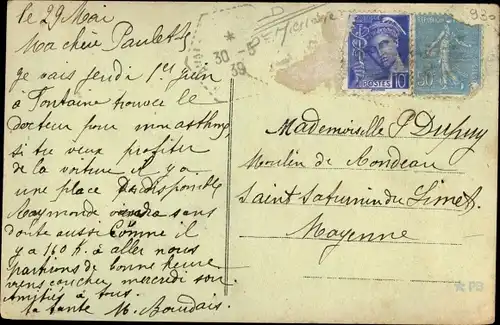 le 29 Mai
Ma chère Paulette
je vais jeudi 1er juin
à Fontaine trouver le
docteur pour mon asthme,
si tu veux profiter
de la voiture il y a
une place disponible
Raymonde viendra sans
doute aussi comme il
y a 140 K. à aller nous
partirons de bonne heure
viens coucher mercredi soir
Amitiés à tous.
ta tante M. Boudais.
30-5
39
POSTES 10
50
Mademoiselle P Dupuy
Moulin de Condeau
Saint Saturnin du Limet.
Mayenne
PB